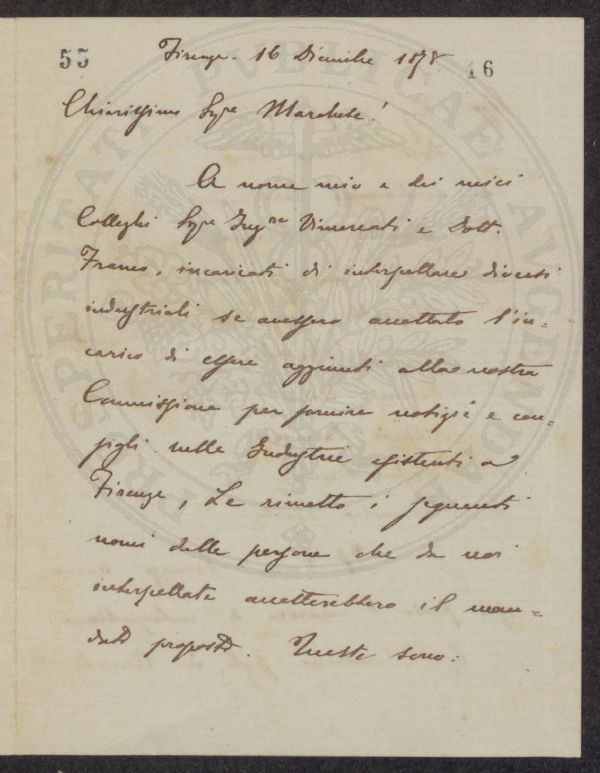 55
Firenze. 16 Dicembre 1878
16
Chiarissimo Sigre Marchese!
A nome mio e dei miei
Colleghi Sigri Ingre Vimercati e Dott.
Franco, incaricati di interpellare diversi
industriali se avessero accettato l'in=
carico di essere aggiunti alla nostra
Commissione per fornire notizie e con=
sigli sulle Industrie esistenti a
Firenze, Le rimetto i seguenti
nomi delle persone che da noi
interpellate accetterebbero il man=
dato proposto. Queste sono:
PROSPERITATI PVBLICAE AVGENDAE